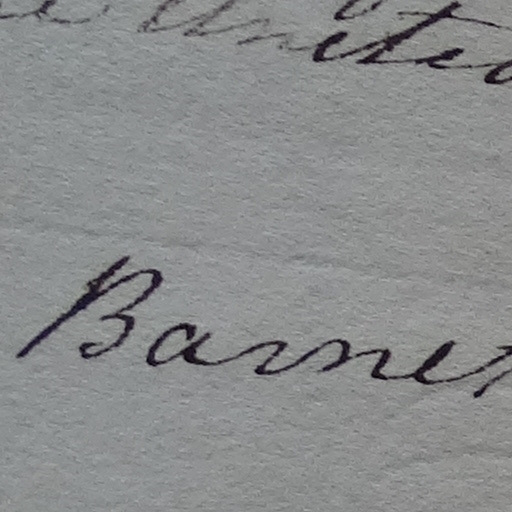 United
Barnes